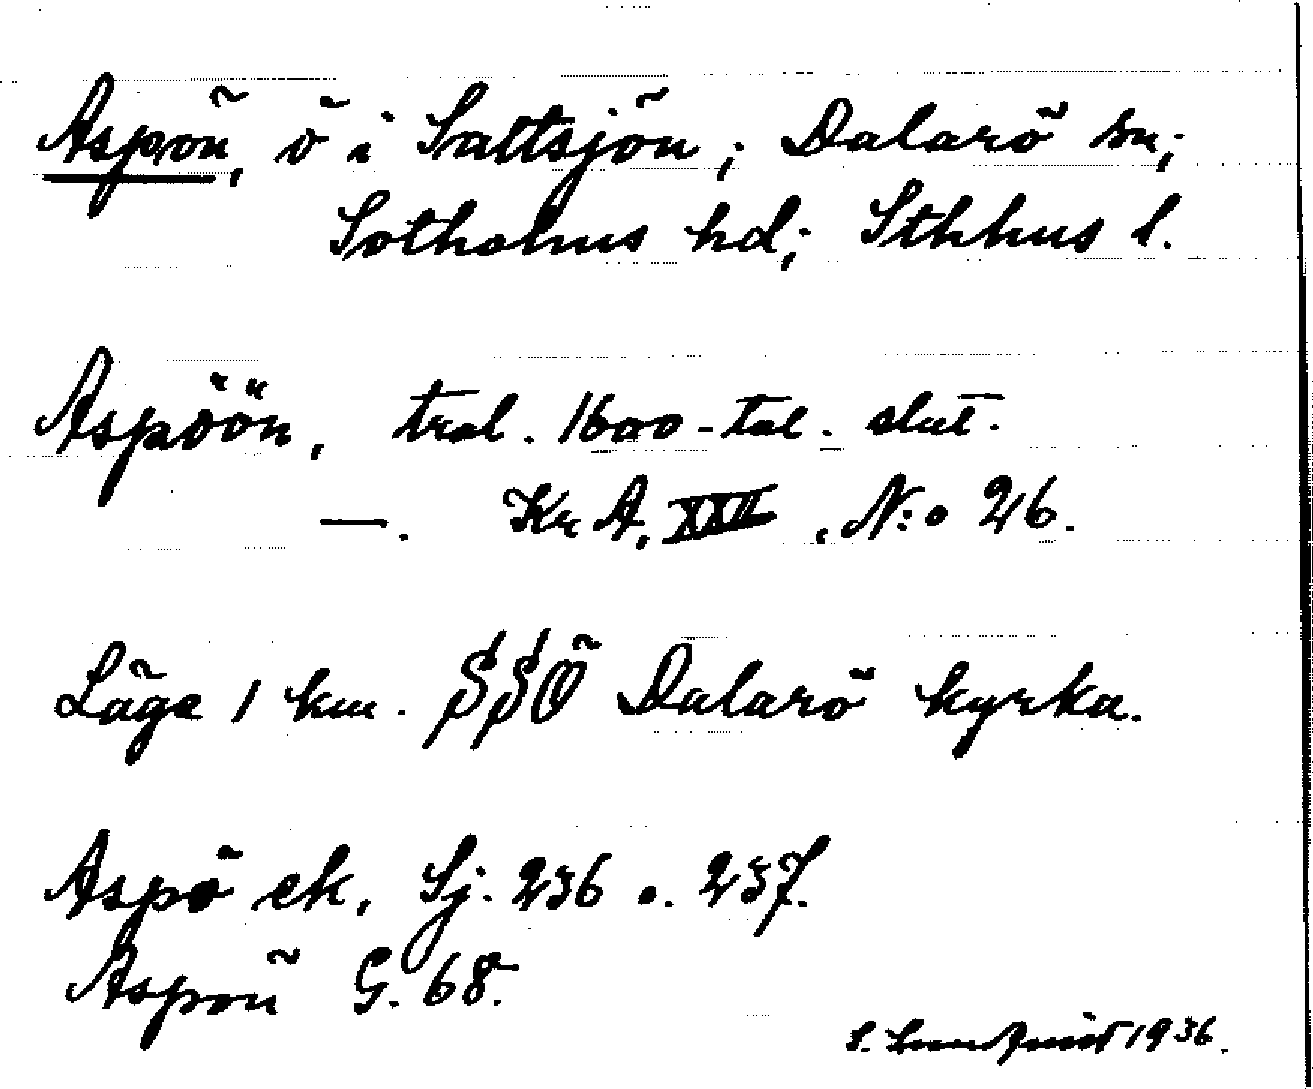 Aspön, ö i Saltsjön; Dalarö sn;
Sotholms hd; Sthlms l.
Aspöön, trol. 1600-tal. slut.
—. Kr A, XXII, N:o 26.
Läge 1 km. SSÖ Dalarö kyrka.
Aspö ek, Sj. 236 o. 237.
Aspön G. 68.
1936.